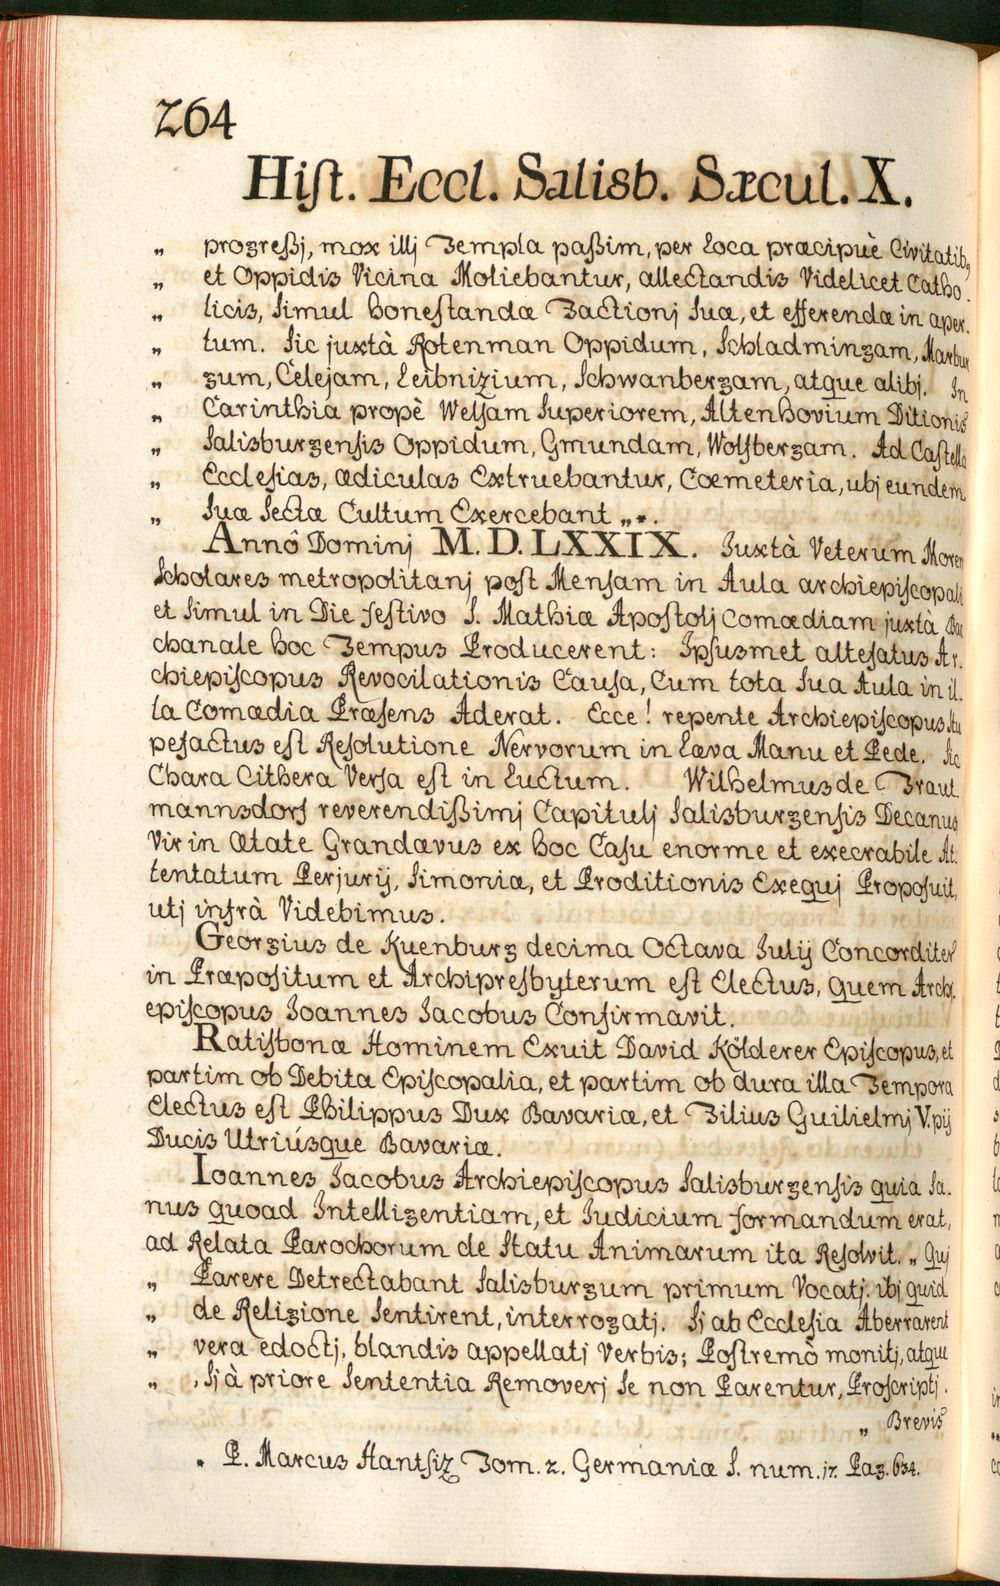 264
Hiſt. Eccl. Salisb. Sæcul. X.
„ progreßj, mox illj Templa paßim, per Loca præcipuè Civitatibꝫ
„ et Oppidis Vicina Moliebantur, allectandis Videlicet Catho-
„ licis, Simul honeſtandæ Factionj Suæ, et efferendæ in aper-
„ tum. Sic juxtà Rotenman Oppidum, Schladmingam, Marbur
„ gum, Celejam, Leibnizium, Schwanbergam, atque alibj. In
„ Carinthia propè Welſam Superiorem, Altenhovium Ditionis
„ Salisburgenſis Oppidum, Gmundam, Wolfsbergam. Ad Caſtella
„ Eccleſias, ædiculas Extruebantur, Cœmeteria, ubj eundem
„ Suæ Sectæ Cultum Exercebant „*.
Annô Dominj M. D. LXXIX. Juxtà Veterum Morem
Scholares metropolitanj poſt Menſam in Aula archiepiſcopali
et Simul in Die feſtivo S. Mathiæ Apoſtolj Comœdiam juxtà Bac
chanale hoc Tempus Producerent: Ipſusmet altefatus Ar-
chiepiſcopus Revocilationis Cauſa, Cum tota Sua Aula in il-
la Comœdia Præſens Aderat. Ecce! repente Archiepiſcopus Stu
pefactus eſt Reſolutione Nervorum in Læva Manu et Pede. Sic
Chara Cithera Verſa eſt in Luctum. Wilhelmus de Traut-
mannsdorf reverendißimj Capitulj Salisburgenſis Decanus
Vir in Ætate Grandævus ex hoc Caſu enorme et execrabile At-
tentatum Perjurij, Simoniæ, et Proditionis Exequj Propoſuit,
utj infrà Videbimus.
Georgius de Kuenburg decima Octava Julij Concorditer
in Præpoſitum et Archipresbyterum eſt Electus, quem Archi-
epiſcopus Joannes Jacobus Confirmavit.
Ratiſbonæ Hominem Exuit David Kölderer Epiſcopus, et
partim ob Debita Epiſcopalia, et partim ob dura illa Tempora
Electus eſt Philippus Dux Bavariæ, et Filius Guilielmj V. pij
Ducis Utriúsque Bavariæ.
Ioannes Jacobus Archiepiſcopus Salisburgenſis quia Sa-
nus quoad Intelligentiam, et Judicium formandum erat,
ad Relata Parochorum de Statu Animarum ita Reſolvit. „ Quj
„ Parere Detrectabant Salisburgum primum Vocatj. ibj quid
„ de Religione Sentirent, interrogatj. Sj ab Eccleſia Aberrarent
„ vera edoctj, blandis appellatj Verbis; Poſtremò monitj, atque
„ , Sj à priore Sententia Removerj Se non Parentur, Proſcriptj.
„ Brevis
* P. Marcus Hantſiz Tom. 2. Germaniæ S. num. 17. Pag. 634.